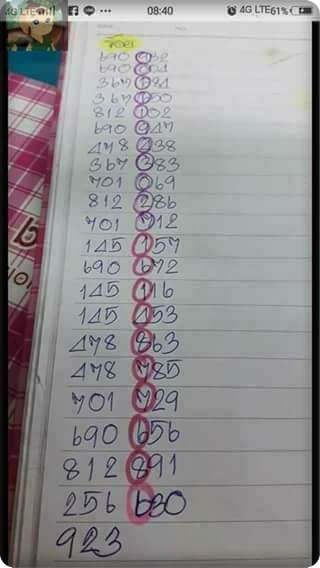 4G LTE 08:40 4G LTE 61%
690 932
367 184
367 150
812 102
690 947
478 438
367 383
701 069
812 286
701 712
145 157
690 672
145 116
145 453
478 863
478 785
701 729
690 656
812 891
256 680
923